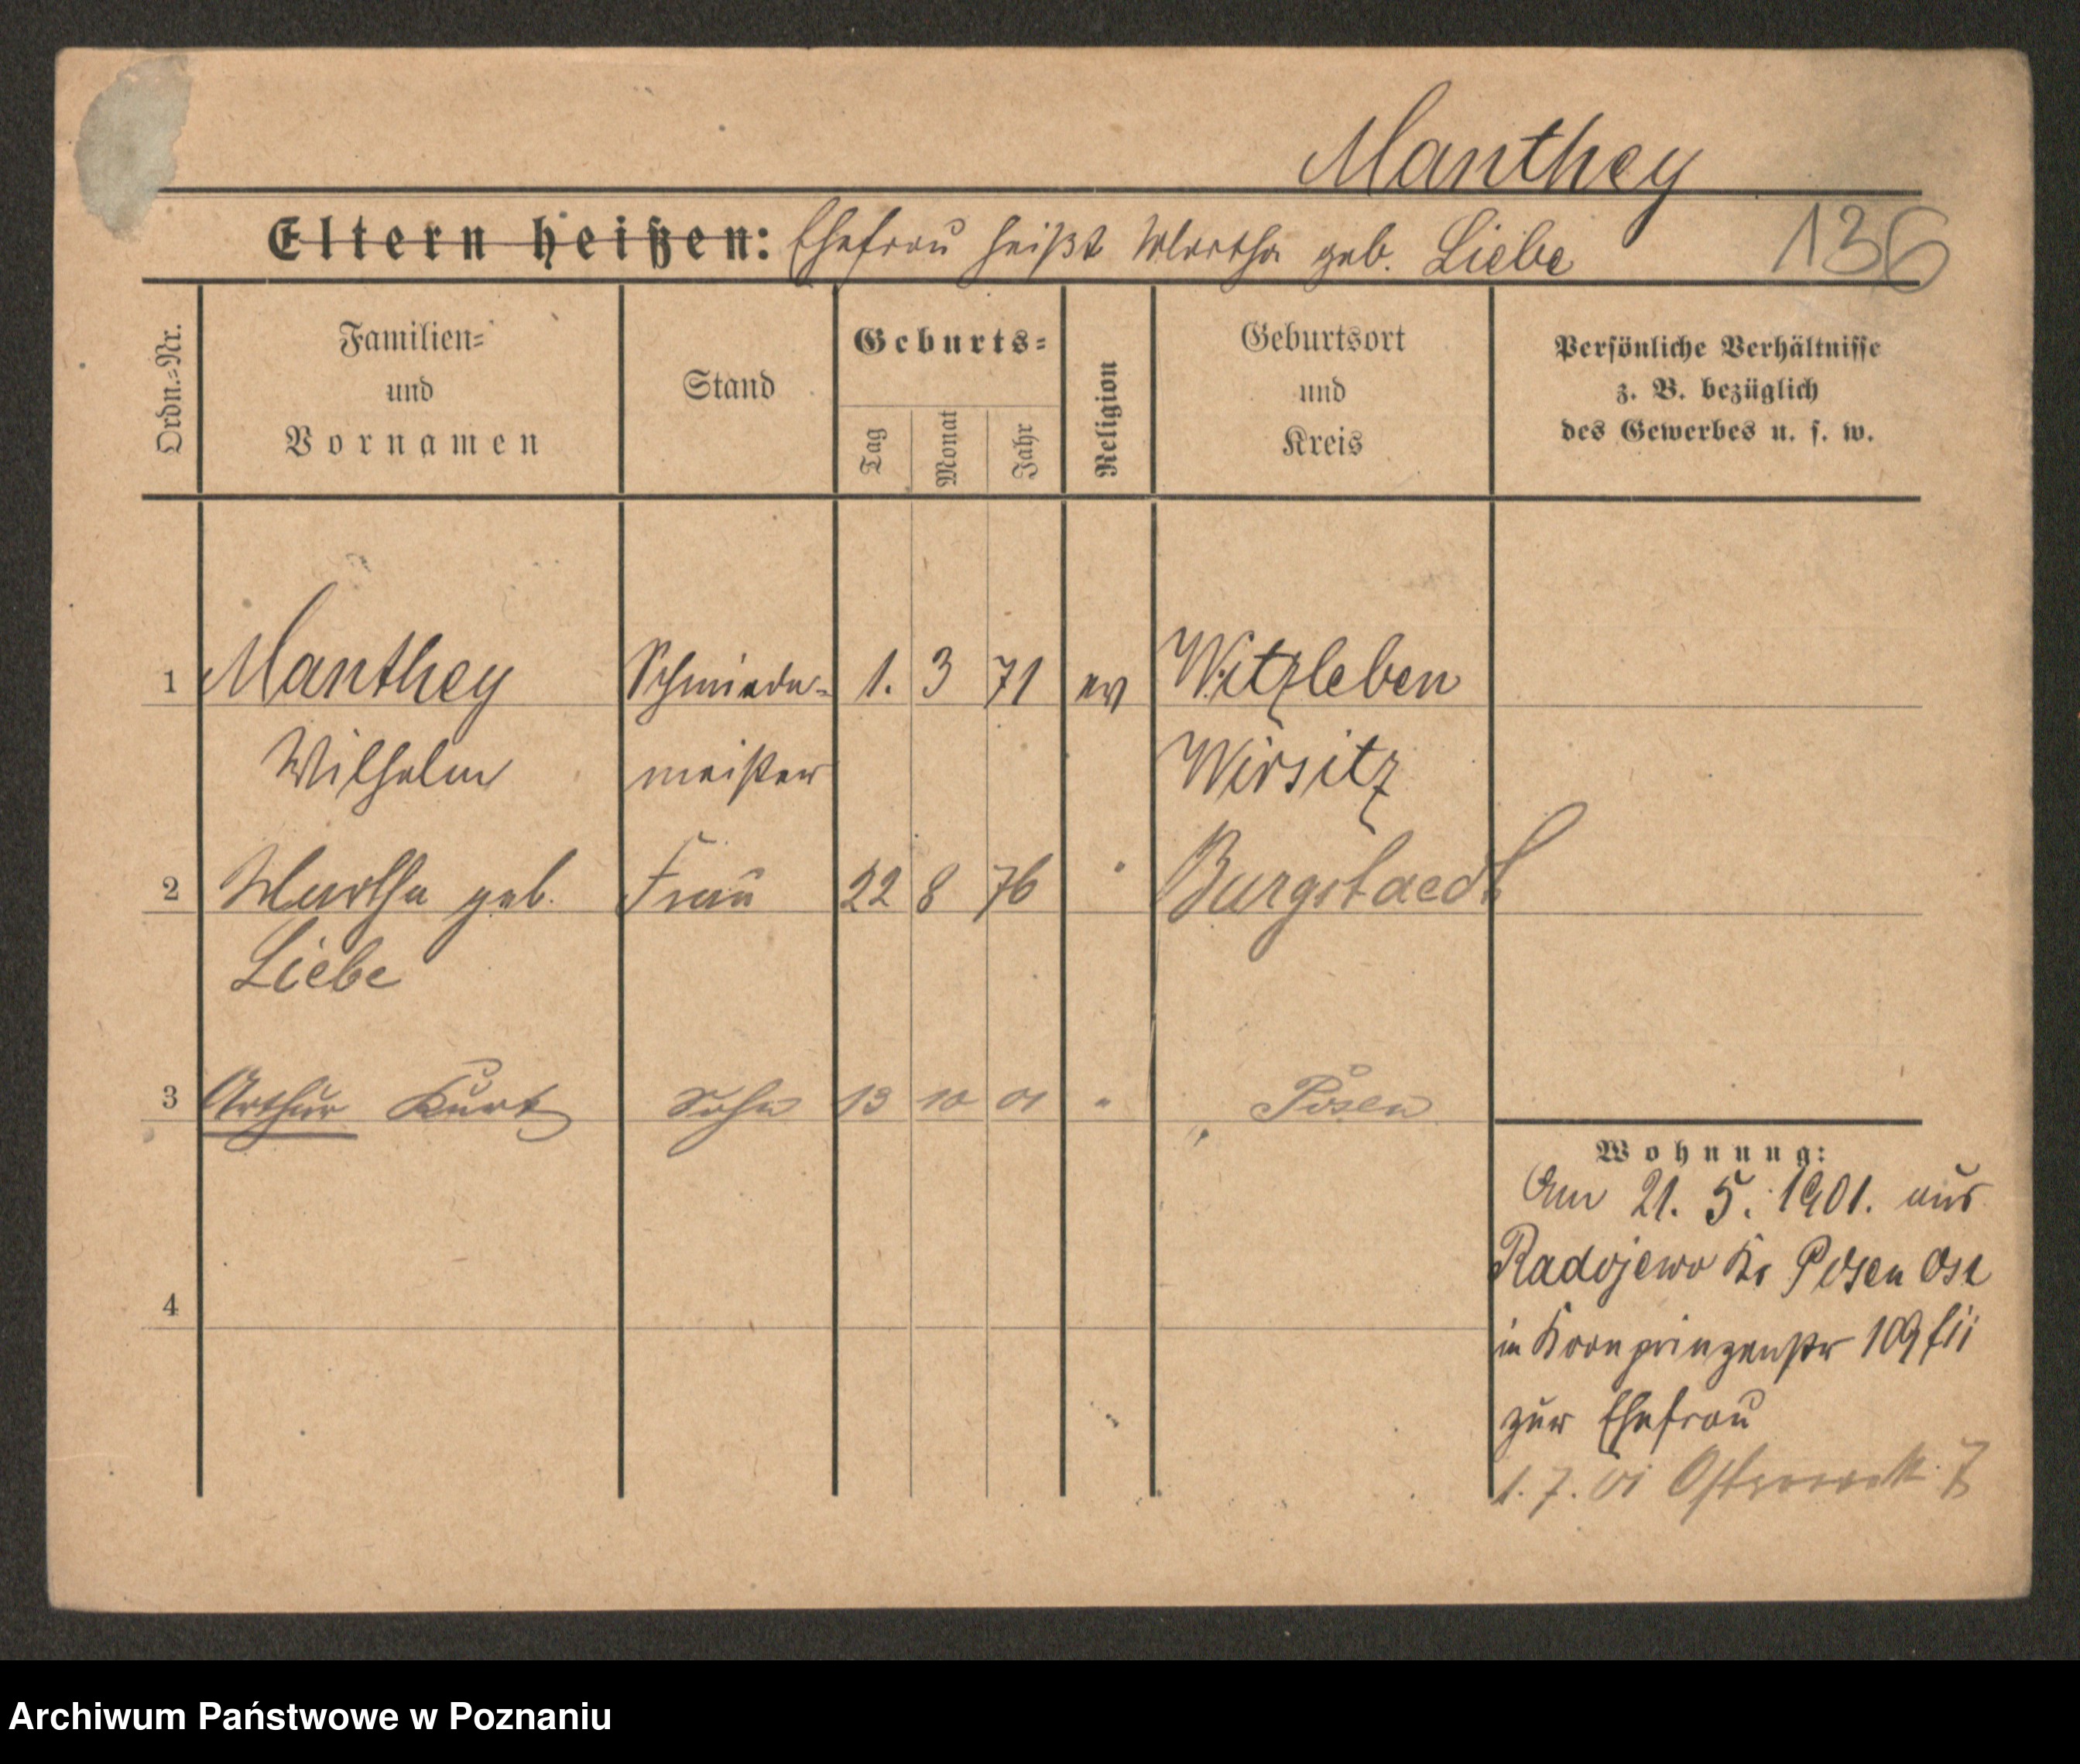 Manthey
136
Eltern heißen: Ehefrau heißt Martha geb. Liebe
Ordn.=Nr.
Familien=
und
Vornamen
Stand
Geburts=
Tag
Monat
Jahr
Religion
Geburtsort
und
Kreis
Persönliche Verhältnisse
z. B. bezüglich
des Gewerbes u. s. w.
1 Manthey Schmiede- 1. 3 71 ev Witzleben
Wilhelm meister Wirsitz
2 Martha geb. Frau 22 8 76 " Burgstaedt
Liebe
3 Arthur Kurt Sohn 13 10 01 " Posen
4
Wohnung:
Am 21. 5. 1901. aus
Radojewo Kr Posen Ost
in Kronprinzenstr 109
zur Ehefrau
1. 7. 01
Archiwum Państwowe w Poznaniu